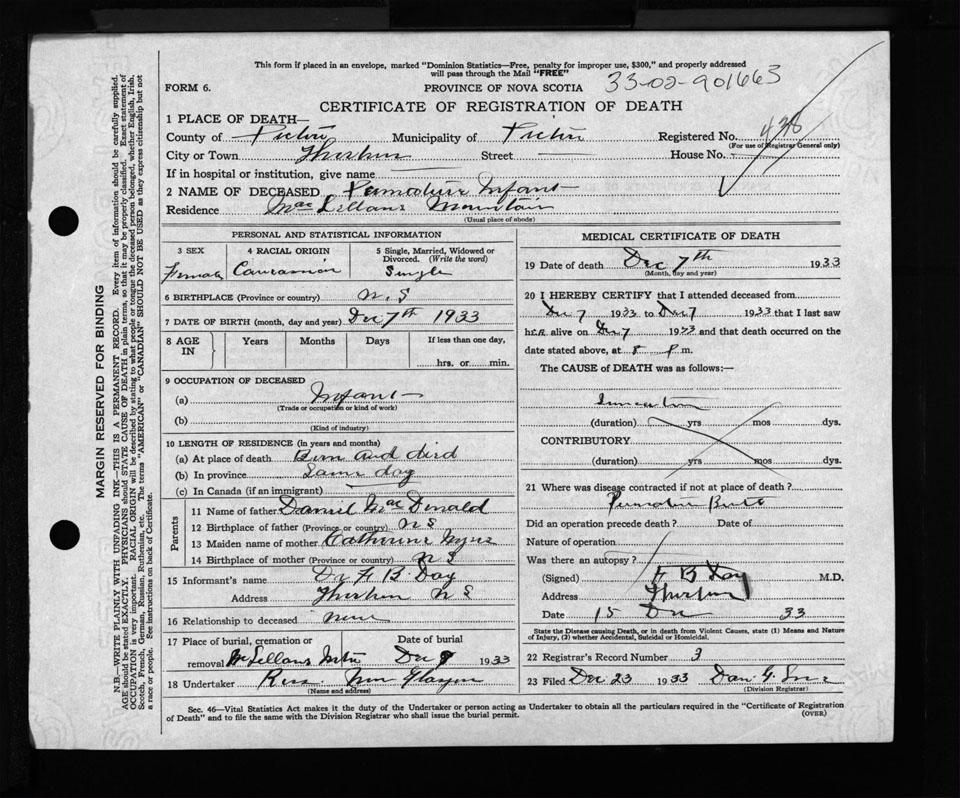 This form if placed in an envelope, marked "Dominion Statistics—Free, penalty for improper use, $300," and properly addressed
will pass through the Mail "FREE"
FORM 6.
PROVINCE OF NOVA SCOTIA
33-02-901663
CERTIFICATE OF REGISTRATION OF DEATH
1 PLACE OF DEATH—
County of Pictou Municipality of Pictou Registered No. 438
(For use of Registrar General only)
City or Town Thorburn Street — House No. -
If in hospital or institution, give name
2 NAME OF DECEASED Premature Infant
Residence MacLellans Mountain
(Usual place of abode)
PERSONAL AND STATISTICAL INFORMATION
3 SEX Female
4 RACIAL ORIGIN
5 Single, Married, Widowed or Divorced. (Write the word) Single
6 BIRTHPLACE (Province or country) N.S
7 DATE OF BIRTH (month, day and year) Dec 7th 1933
8 AGE IN Years Months Days If less than one day, ......hrs. or......min.
9 OCCUPATION OF DECEASED
(a) Infant
(Trade or occupation or kind of work)
(b)
(Kind of industry)
10 LENGTH OF RESIDENCE (in years and months)
(a) At place of death Born and died
(b) In province same day
(c) In Canada (if an immigrant)
Parents
11 Name of father Daniel MacDonald
12 Birthplace of father (Province or country) N S
13 Maiden name of mother Catherine Myers
14 Birthplace of mother (Province or country) N S
15 Informant's name Dr H B Day
Address Thorburn N S
16 Relationship to deceased none
17 Place of burial, cremation or removal McLellans Mtn
Date of burial Dec 9 1933
18 Undertaker New Glasgow
(Name and address)
MEDICAL CERTIFICATE OF DEATH
19 Date of death Dec 7th 1933
(Month, day and year)
20 I HEREBY CERTIFY that I attended deceased from
Dec 7 1933 to Dec 7 1933 that I last saw
her alive on Dec 7 1933 and that death occurred on
date stated above, at 8 P m.
The CAUSE of DEATH was as follows:—
(duration) yrs mos dys.
CONTRIBUTORY
(duration) yrs mos dys.
21 Where was disease contracted if not at place of death?
Premature Birth
Did an operation precede death? Date of
Nature of operation
Was there an autopsy?
(Signed) H B Day M.D.
Address Thorburn
Date 15 Dec 33
State the Disease causing Death, or in death from Violent Causes, state (1) Means and Nature
of Injury, (2) whether Accidental, Suicidal or Homicidal.
22 Registrar's Record Number 3
23 Filed Dec 23 1933 Dan G.
(Division Registrar)
Sec. 46—Vital Statistics Act makes it the duty of the Undertaker or person acting as Undertaker to obtain all the particulars required in the "Certificate of Registration
of Death" and to file the same with the Division Registrar who shall issue the burial permit. (OVER)
MARGIN RESERVED FOR BINDING
N.B.—WRITE PLAINLY WITH UNFADING INK—THIS IS A PERMANENT RECORD. Every item of information should be carefully supplied.
AGE should be stated EXACTLY. PHYSICIANS should STATE CAUSE OF DEATH in plain terms, so that it may be properly classified. Exact statement of
OCCUPATION is very important. RACIAL ORIGIN will be described by stating to what people or tongue the deceased person belonged, whether English, Irish,
Scotch, French, German, Russian, Ruthenian, etc. The terms "AMERICAN" or "CANADIAN" SHOULD NOT BE USED as they express citizenship but not
a race or people. See instructions on back of Certificate.